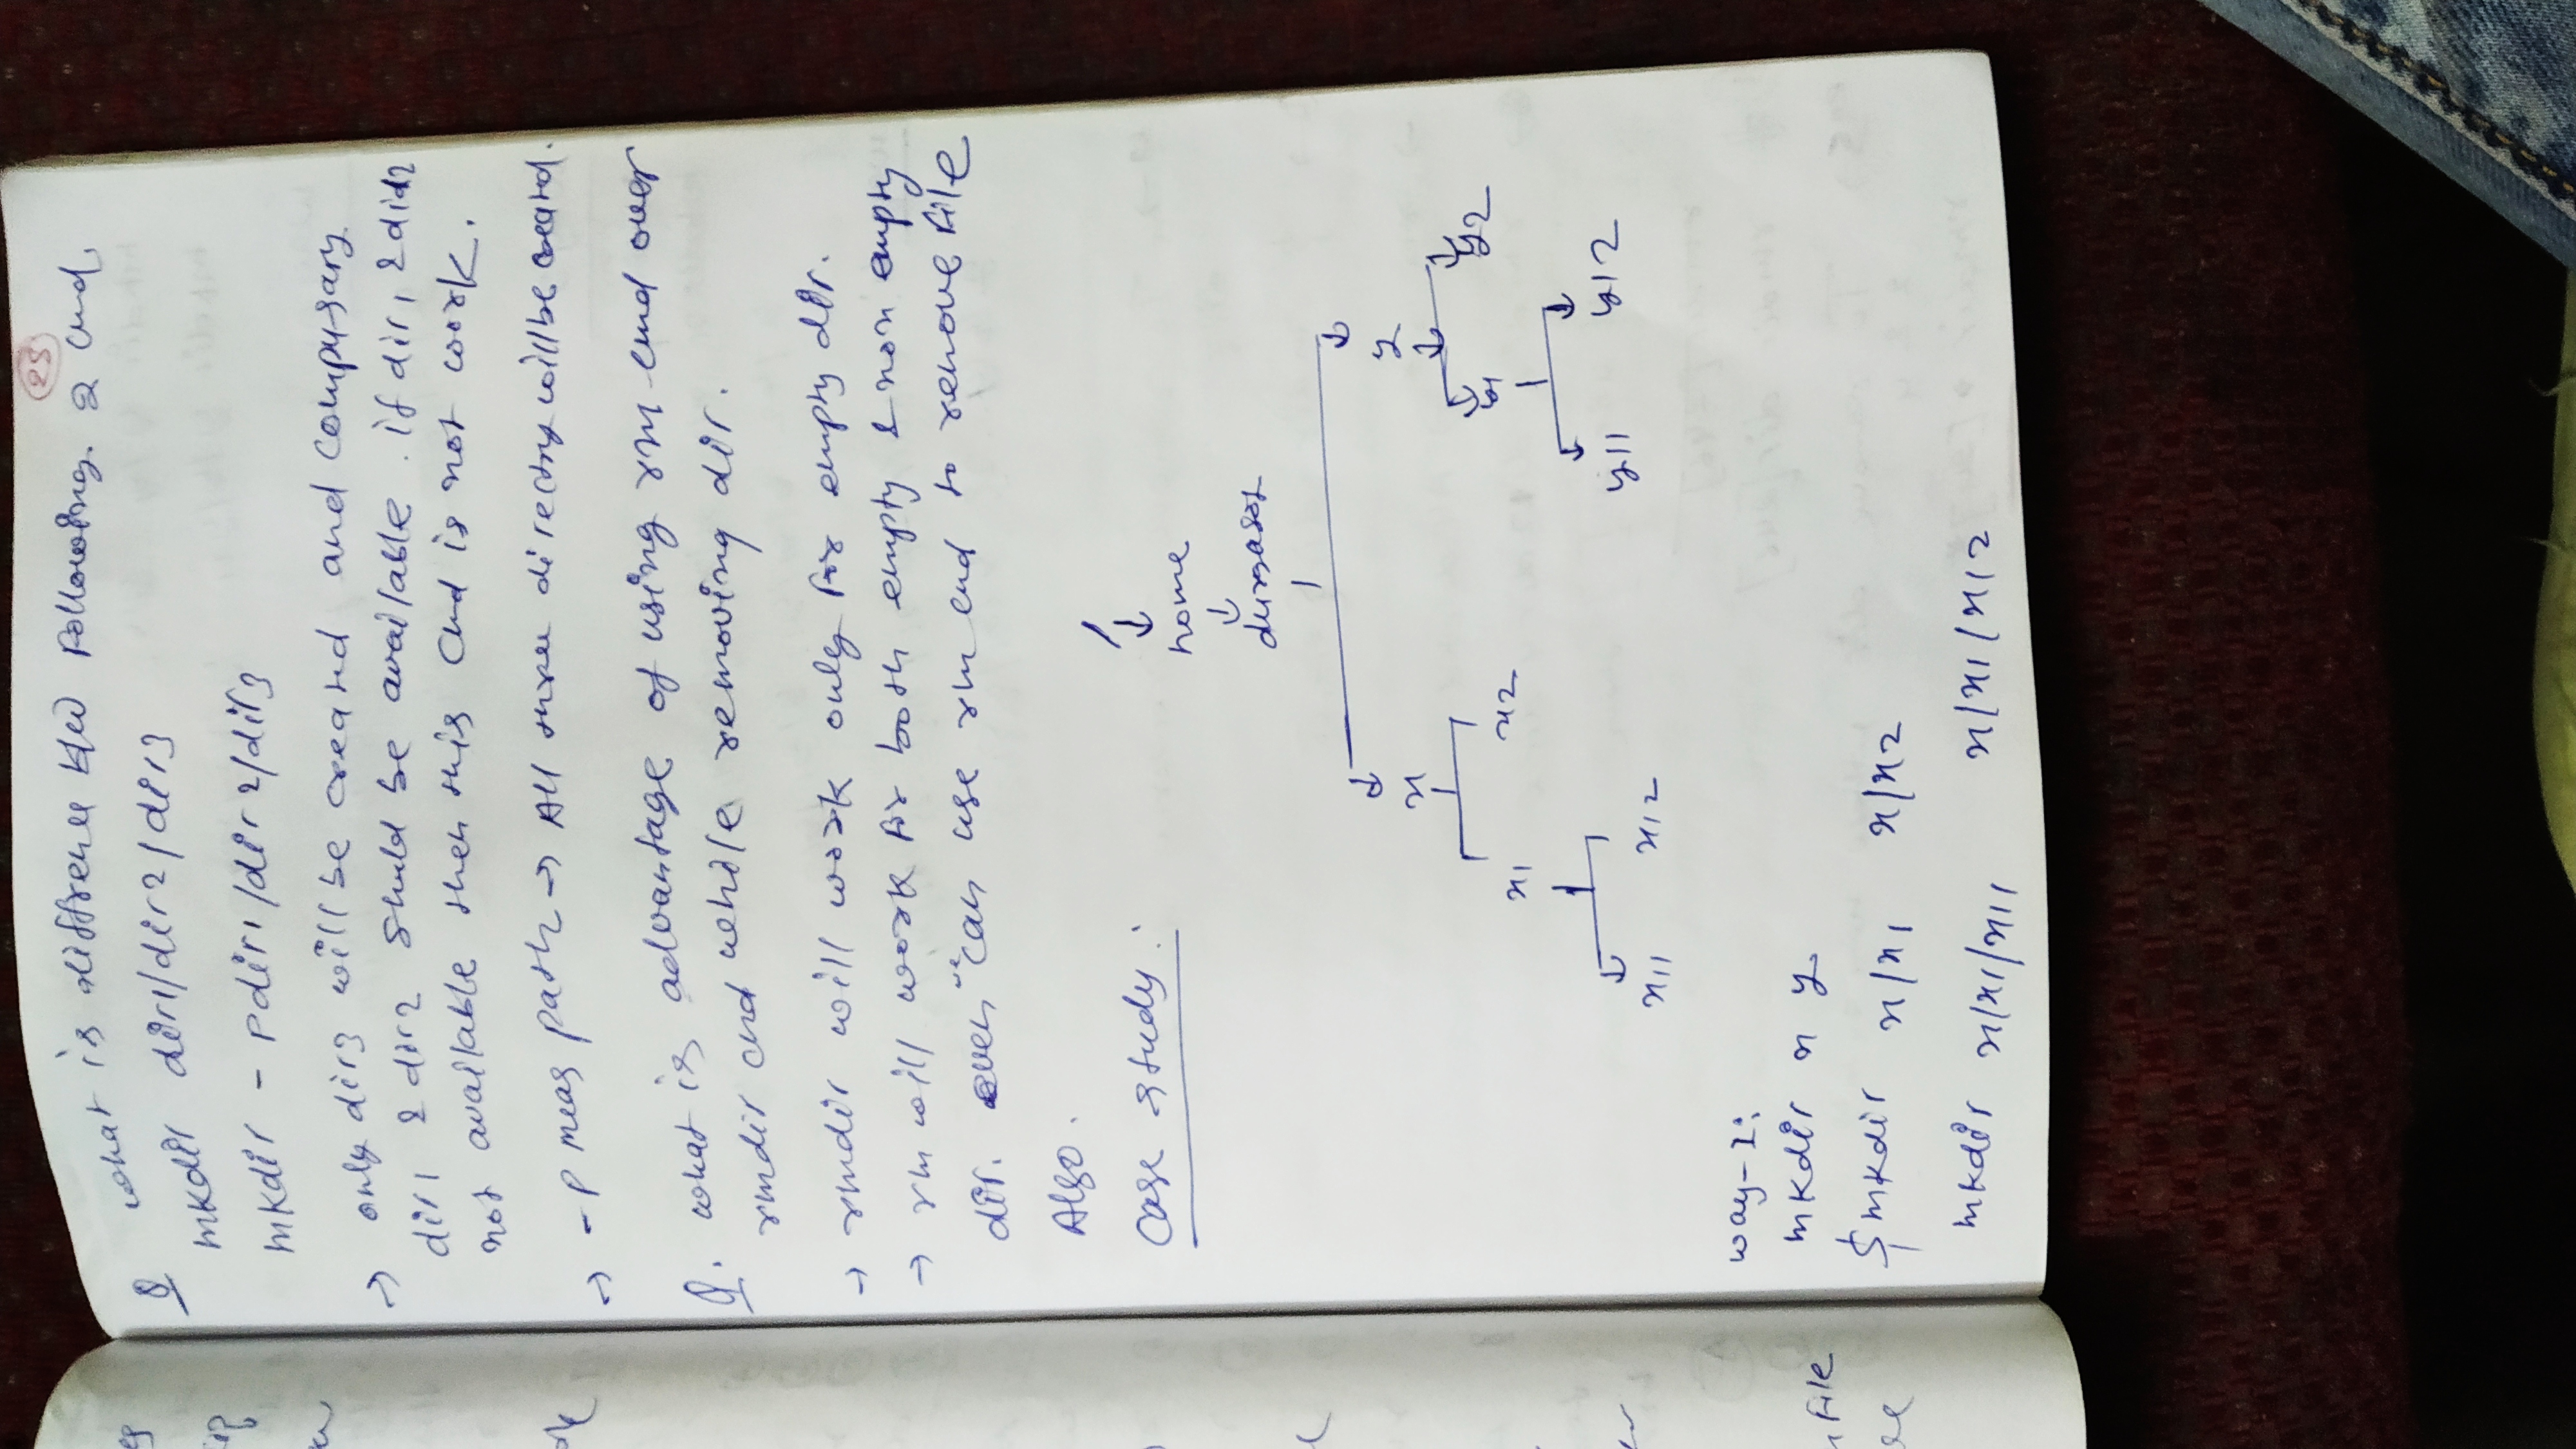 25
Q what is difference b/w following. 2 cmd.
mkdir dir1/dir2/dir3
mkdir - p dir1/dir2/dir3
→ only dir3 will be created and compusary
dir1 & dir2 should be available. if dir1 & did2
not available then this cmd is not work.
→ -p meas path → All three directry will be created.
Q. what is advantage of using rm cmd over
rmdir cmd while removing dir.
→ rmdir will work only for empty dir.
→ rm will work for both empty & non empty
dir. even we can use rm cmd to remove file
Also.
Case study:
/
home
durgasoft
x y
x1 x2 y1 y2
x11 x12 y11 y12
way-1:
mkdir x y
$ mkdir x/x1 x/x2
mkdir x/x1/x11 x/x1/x12
file